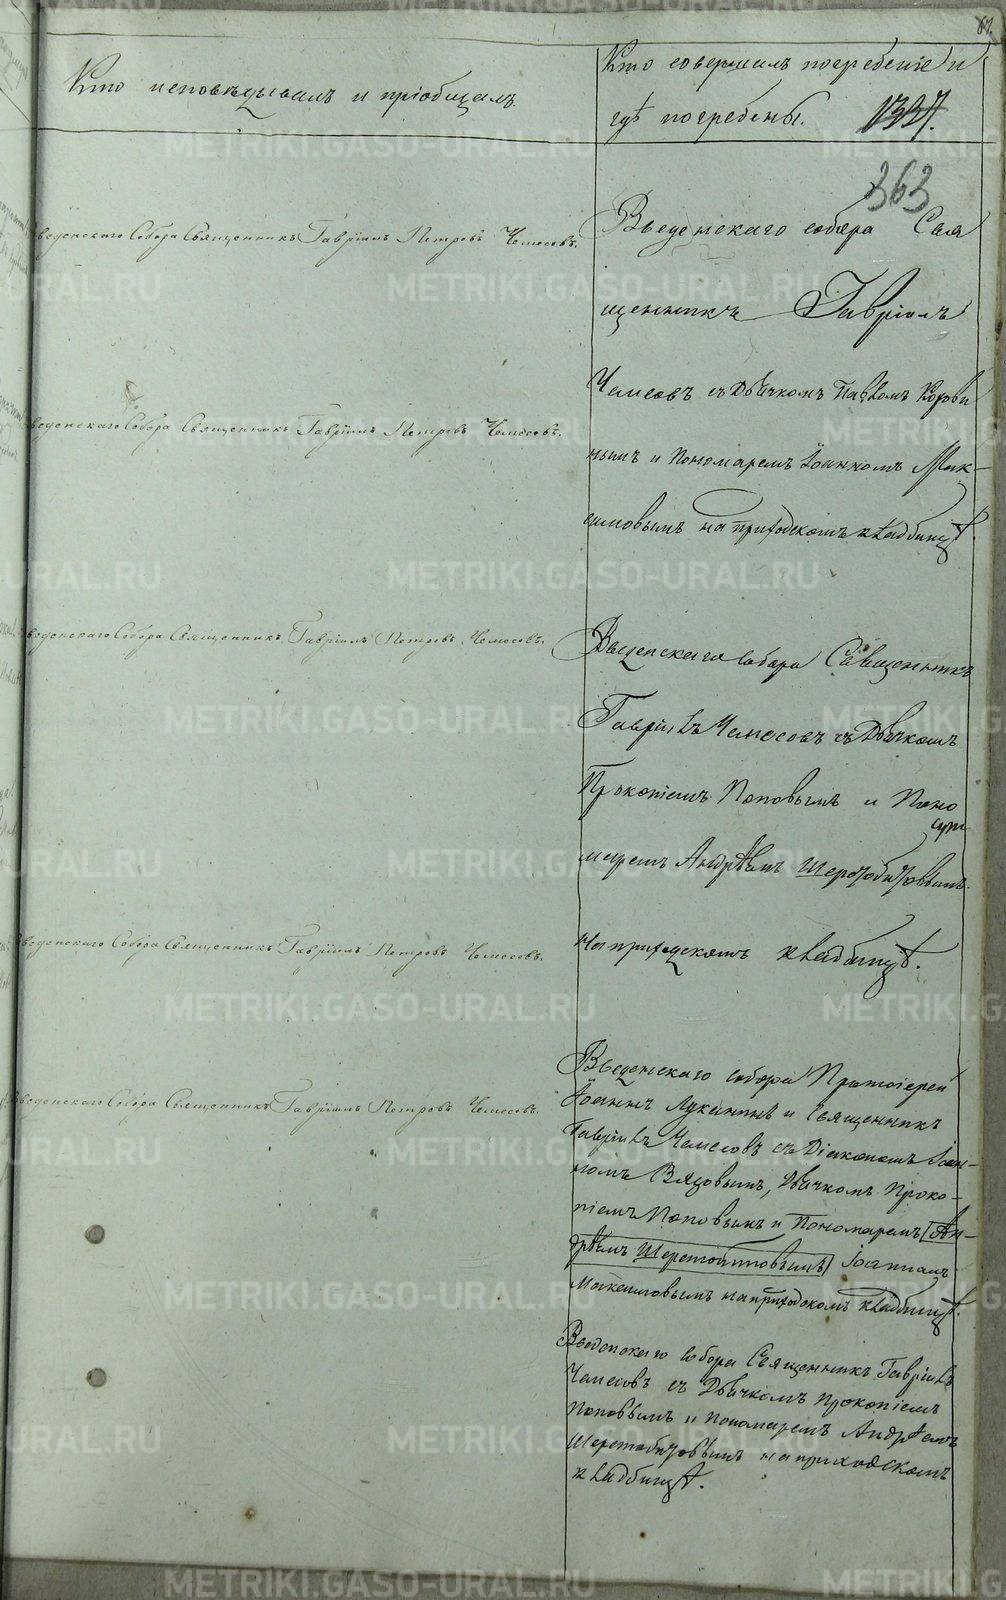 Кто исповѣдывалъ и пріобщалъ.
Кто совершалъ погребеніе и
гдѣ погребены. 1337.
363
Введенскаго Собора Священникъ Гавріилъ Петровъ Чемесовъ.
Введенскаго Собора Священникъ Гавріилъ Петровъ Чемесовъ.
Введенскаго Собора Священникъ Гавріилъ Петровъ Чемесовъ.
Введенскаго Собора Священникъ Гавріилъ Петровъ Чемесовъ.
Введенскаго Собора Священникъ Гавріилъ Петровъ Чемесовъ.
Введенскаго собора Свя
щенникъ Гавріилъ
Чемесовъ съ Дьячкомъ Павломъ Корови
нымъ и Пономаремъ Іоанномъ Мак-
симовымъ на приходскомъ кладбищѣ.
Введенскаго собора Священникъ
Гавріилъ Чемесовъ съ Дьячкомъ
Прокопіемъ Поповымъ и Поно
маремъ Андрѣемъ
на приходскомъ кладбищѣ.
Введенскаго собора Протоіерей
Іоаннъ Луканинъ и Священникъ
Гавріилъ Чемесовъ съ Діакономъ Іоан-
номъ Вяцовымъ, Дьячкомъ Проко-
піемъ Поповымъ и Пономаремъ Ан-
дрѣемъ Шереметовымъ Іоанномъ
Максимовымъ на приходскомъ кладбищѣ.
Введенскаго собора Священникъ Гавріилъ
Чемесовъ съ Дьячкомъ Прокопіемъ
Поповымъ и Пономаремъ Андрѣемъ
на приходскомъ
кладбищѣ.
METRIKI.GASO-URAL.RU